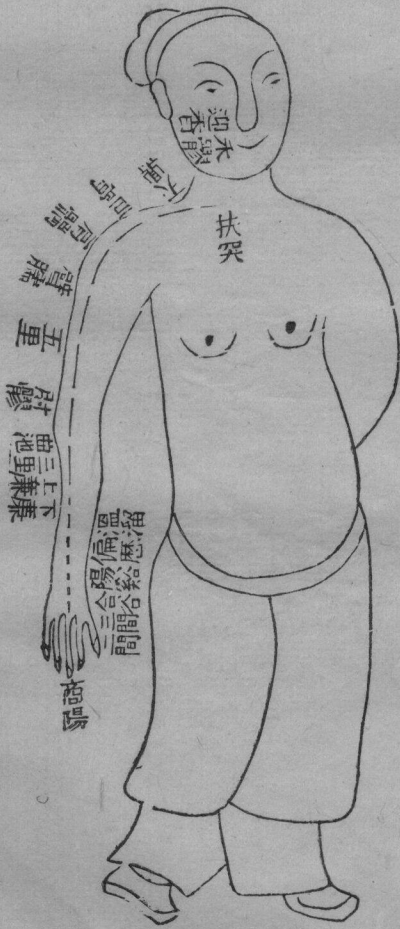 禾髎
迎香
扶突
天鼎
巨骨
肩髃
臂臑
五里
肘髎
曲池
三里
上廉
下廉
溫溜
偏歷
陽谿
合谷
三間
二間
商陽